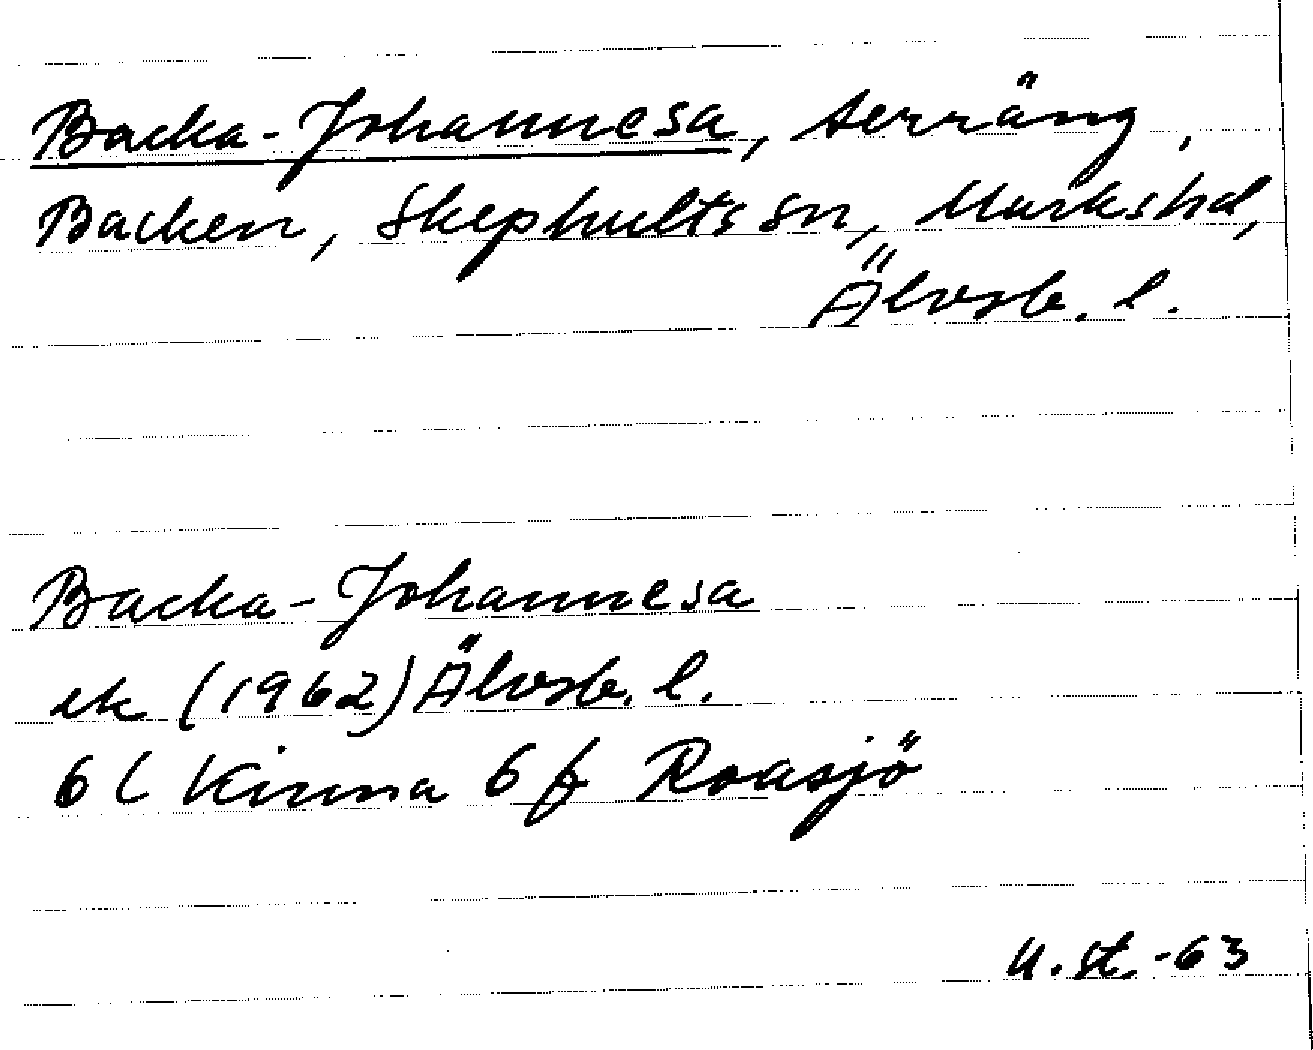 Backa-Johannesa, terräng,
Backen, Skephults sn, Marks hd,
Älvsb. l.
Backa-Johannesa
ek (1962) Älvsb. l.
6 C Kinna 6 f Roasjö
U. St. -63